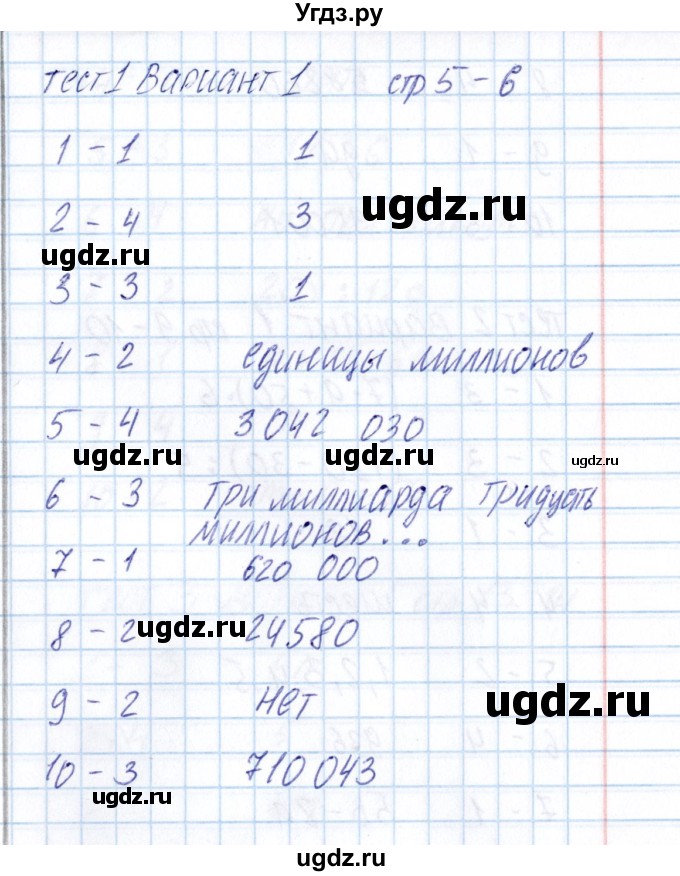 Угдз.ру
тест 1 Вариант 1 стр 5 - 6
1 - 1 1
ugdz.ru
2 - 4 3
ugdz.ru
3 - 3 1
4 - 2 единицы миллионов
5 - 4 3 042 030
ugdz.ru ugdz.ru ugdz.ru
6 - 3 три миллиарда тридцать
миллионов...
7 - 1 620 000
8 - 2 ugdz.ru 24580
9 - 2 нет ugdz.ru
10 - 3 710 043
ugdz.ru
ugdz.ru